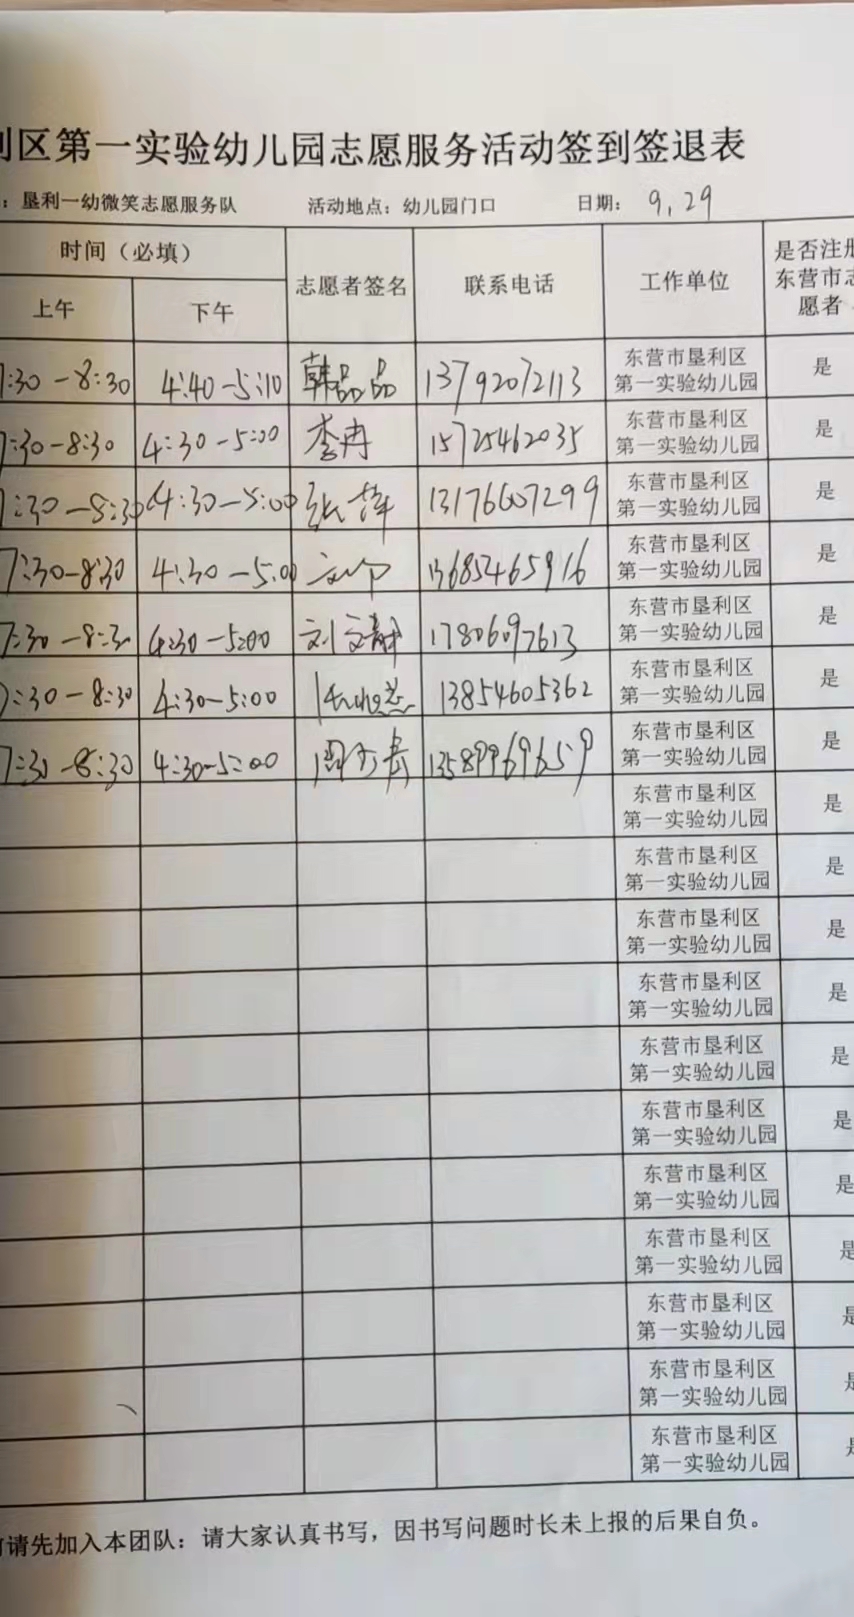 利区第一实验幼儿园志愿服务活动签到签退表
：垦利一幼微笑志愿服务队 活动地点：幼儿园门口 日期： 9.29
时间（必填） 志愿者签名 联系电话 工作单位 是否注册东营市志愿者
上午 下午
7:30-8:30 4:40-5:10 韩品品 13792072113 东营市垦利区第一实验幼儿园 是
7:30-8:30 4:30-5:00 李冉 15725462035 东营市垦利区第一实验幼儿园 是
7:30-8:30 4:30-5:00 张萍 13176607299 东营市垦利区第一实验幼儿园 是
7:30-8:30 4:30-5:00 13685465916 东营市垦利区第一实验幼儿园 是
7:30-8:30 4:30-5:00 刘文静 17806097613 东营市垦利区第一实验幼儿园 是
7:30-8:30 4:30-5:00 13854605362 东营市垦利区第一实验幼儿园 是
7:30-8:30 4:30-5:00 13589969659 东营市垦利区第一实验幼儿园 是
东营市垦利区第一实验幼儿园 是
东营市垦利区第一实验幼儿园 是
东营市垦利区第一实验幼儿园 是
东营市垦利区第一实验幼儿园 是
东营市垦利区第一实验幼儿园 是
东营市垦利区第一实验幼儿园 是
东营市垦利区第一实验幼儿园 是
东营市垦利区第一实验幼儿园 是
东营市垦利区第一实验幼儿园 是
东营市垦利区第一实验幼儿园 是
东营市垦利区第一实验幼儿园 是
请先加入本团队：请大家认真书写，因书写问题时长未上报的后果自负。